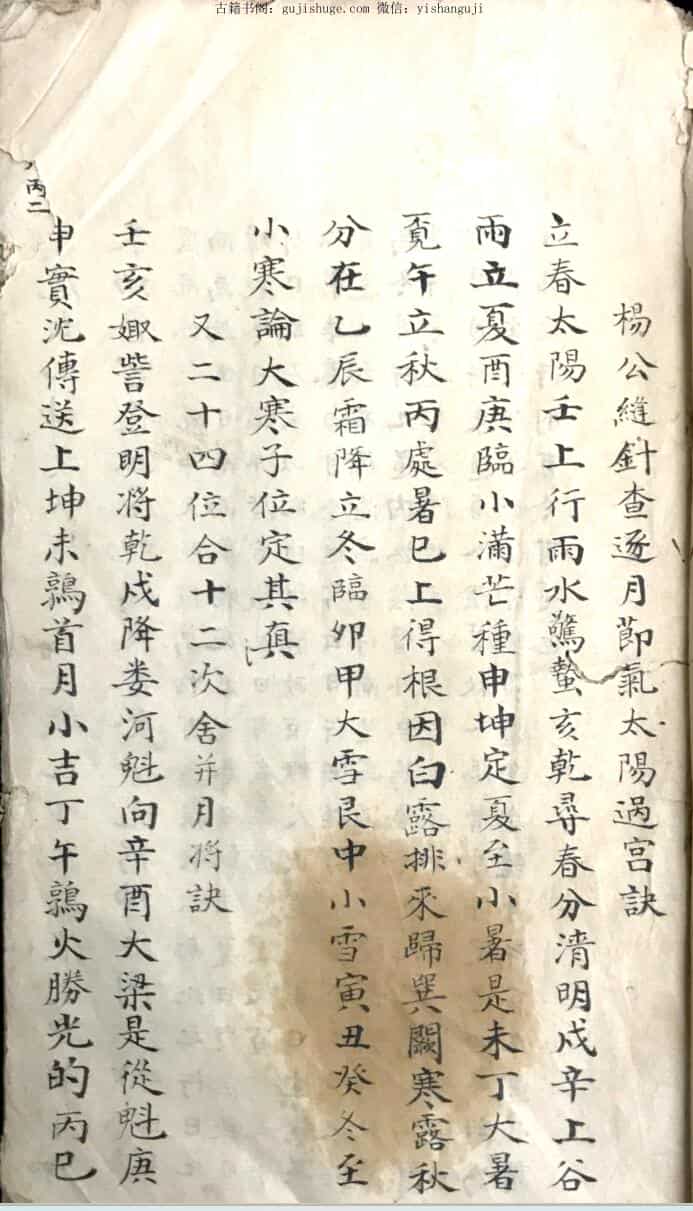 古籍书阁：gujishuge.com 微信：yishanguji
楊公縫針查逐月節氣太陽過宮訣
立春太陽壬上行雨水驚蟄亥乾尋春分清明戍辛上谷
雨立夏酉庚臨小滿芒種申坤定夏至小暑是未丁大暑
覓午立秋丙處暑巳上得根因白露排來歸巽闕寒露秋
分在乙辰霜降立冬臨卯甲大雪艮中小雪寅丑癸冬至
小寒論大寒子位定其真
又二十四位合十二次舍并月将訣
壬亥娵訾登明将乾戍降娄河魁向辛酉大梁是從魁庚
申實沈傳送上坤未鶉首月小吉丁午鶉火勝光的丙巳
丙二